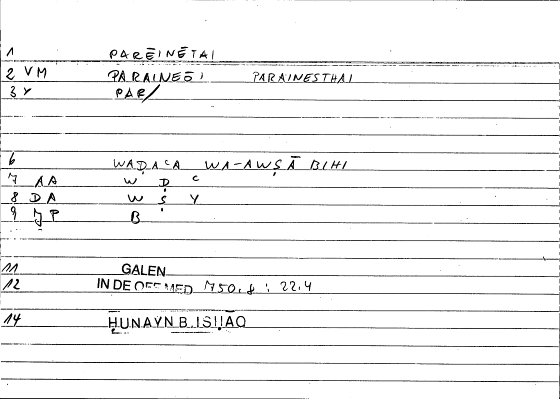 1 PARĒINĒTAI
2 VM PARAINEŌ PARAINESTHAI
3 Y PAR/
6 WAḌAʿA WA-AWṢĀ BIHI
7 AA W Ḍ ʿ
8 DA W Ṣ Y
9 JP B
11 GALEN
12 IN DE OFF MED 750.8 : 22.4
14 ḤUNAYN B. ISḤĀQ